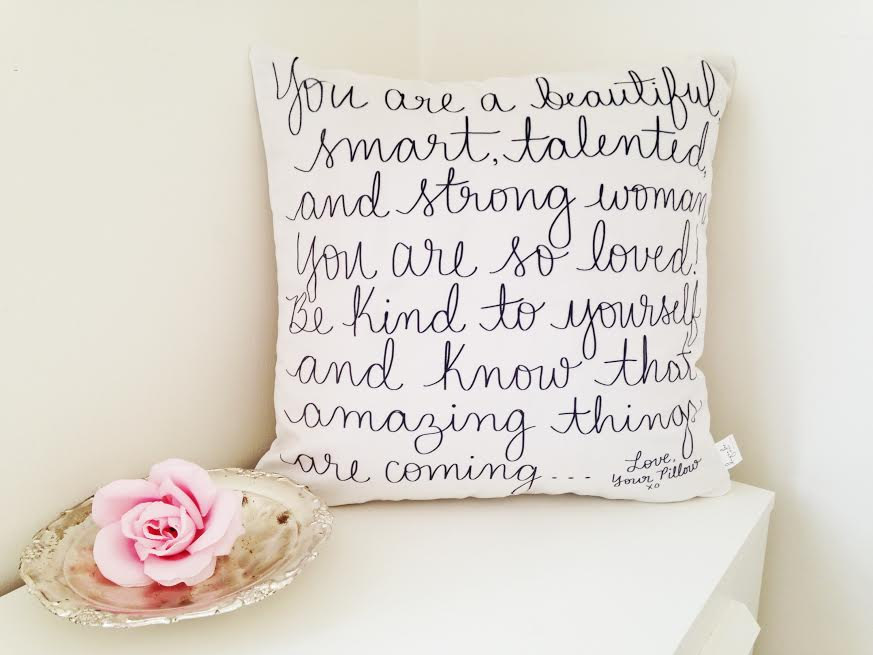 You are a beautiful,
smart, talented,
and strong woman
You are so loved!
Be kind to yourself
and know that
amazing things
are coming...
Love,
Your Pillow
xo